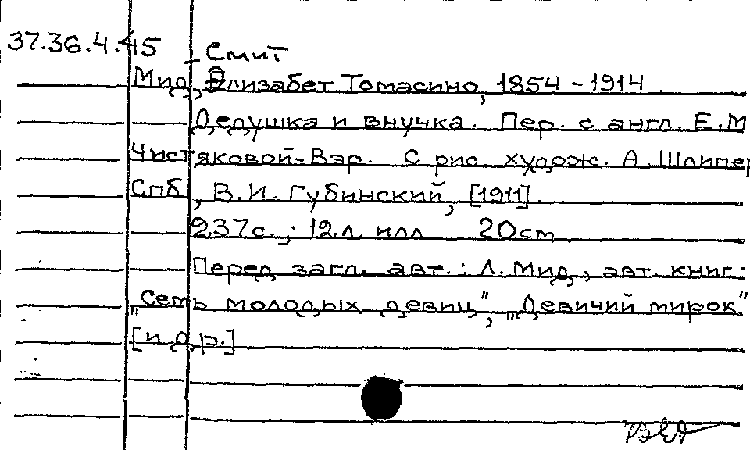 37.36.4.45
Смит
Мид, Елизабет Томасино, 1854 - 1914
Дедушка и внучка. Пер. с англ. Е.М
Чистяковой-Вэр. С рис. худож. А. Шлипер
Спб, В.И. Губинский, [1911].
237с.; 12 л. илл 20см
Перед загл. авт.: Л. Мид, авт. книг:
"Семь молодых девиц", "Девичий мирок"
[и др.]